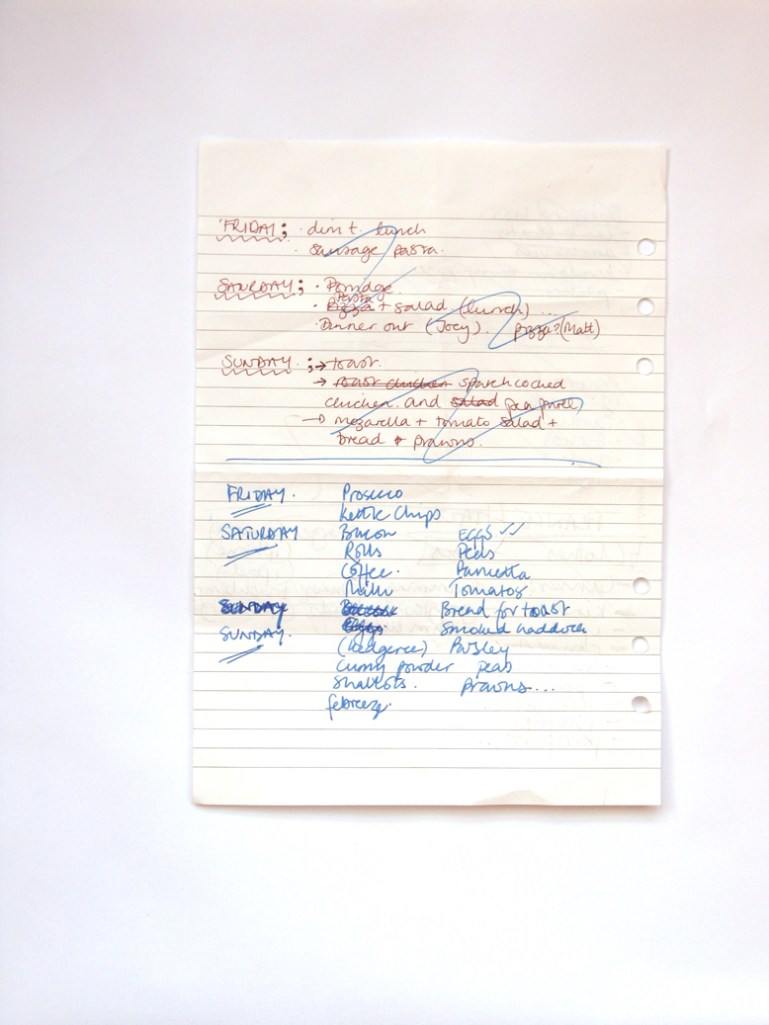 FRIDAY; · dim t. lunch
· Sausage pasta.
SAURDAY; · Porridge
Pasta
· Pizza + salad (lunch) ...
· Dinner out (Joey). pizza? (Matt)
SUNDAY ; → toast.
→ roast chicken spatchcocked
chicken and salad (pea puree)
→ mozarella + tomato salad +
bread + prawns.
FRIDAY. Prosecco
Kettle Chips
SATURDAY Bacon EGGS ✓✓
Rolls Peas
Coffee. Pancetta
Milk Tomatos
SUNDAY Bread for toast
Eggs Smoked haddock
SUNDAY. (kedgeree) Parsley
Curry powder peas
Shallots. Prawns...
febreeze.